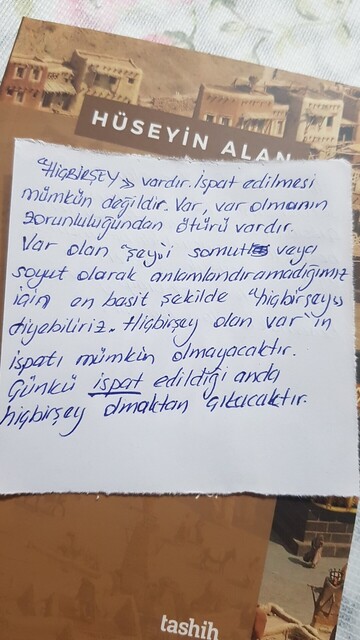 HÜSEYİN ALAN
"HiçBirŞEY» vardır. İspat edilmesi
mümkün değildir. Var, var olmanın
zorunluluğundan ötürü vardır.
Var olan "şey"i somut veya
soyut olarak anlamlandıramadığımız
için en basit şekilde "hiçbirşey»
diyebiliriz. Hiçbirşey olan var'ın
ispatı mümkün olmayacaktır.
Çünkü ispat edildiği anda
hiçbirşey olmaktan çıkacaktır.
tashih